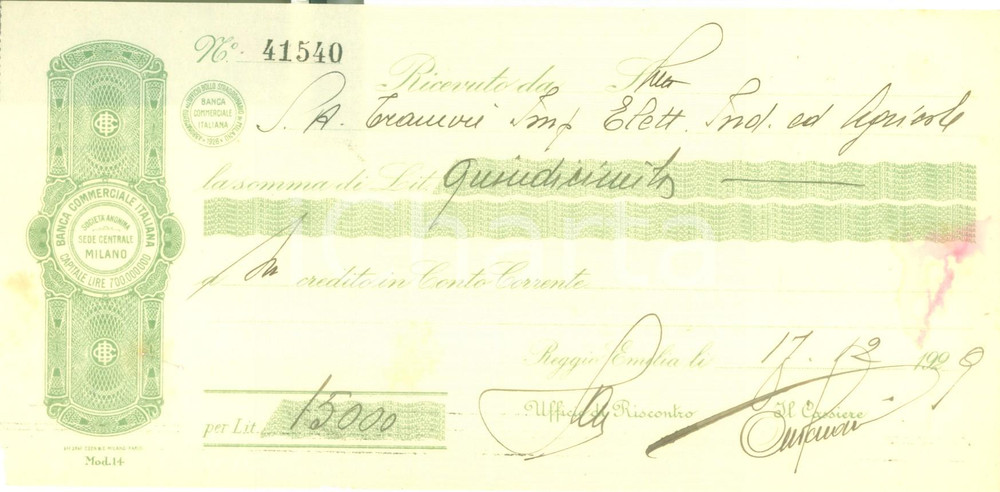 Nº 41540
Ricevuto da Spett
S. A. Tramvie Imp Elett. Ind. ed Agricole
la somma di Lit. Quindicimila
a Su credito in Conto Corrente
Reggio Emilia li 17 - 12 1929
Ufficio di Riscontro Il Cassiere
per Lit. 15000
BANCA COMMERCIALE ITALIANA
SOCIETÀ ANONIMA
SEDE CENTRALE
MILANO
CAPITALE LIRE 700.000.000
BANCA
COMMERCIALE
ITALIANA
Mod. 14
iCharta